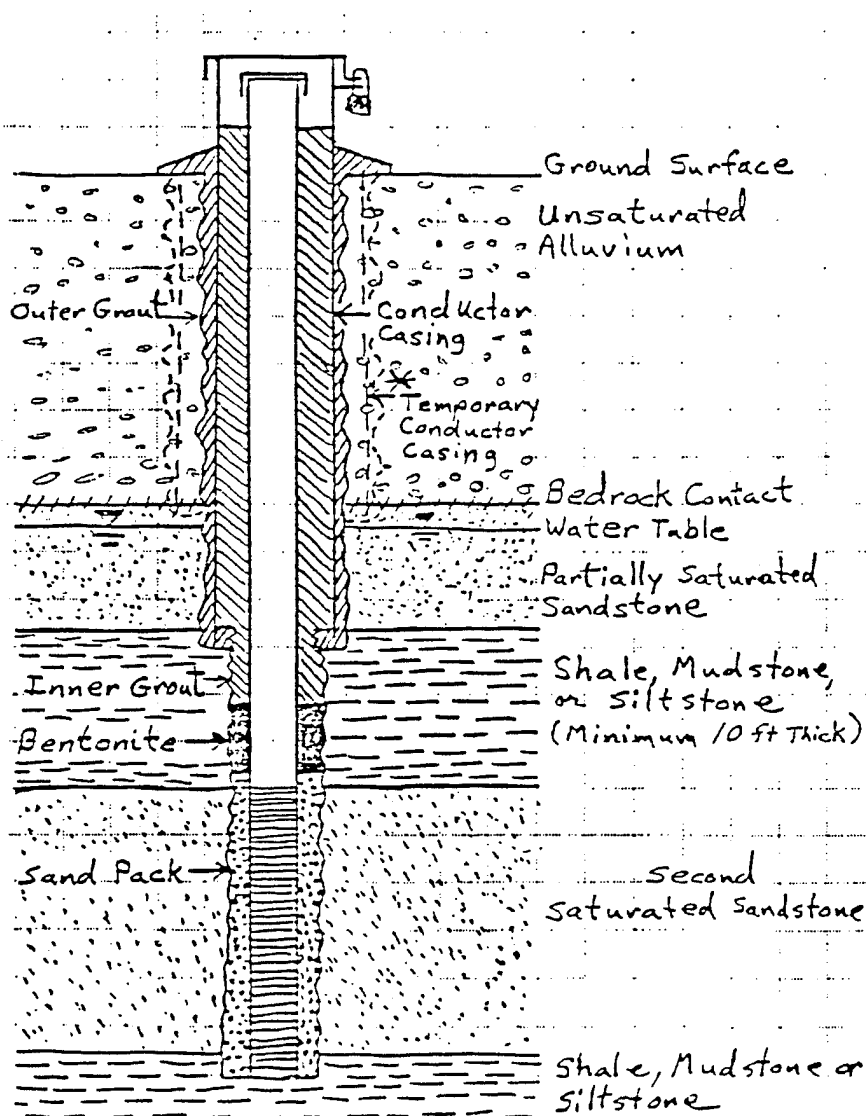 Ground Surface
Unsaturated
Alluvium
Outer Grout
Conductor
Casing
Temporary
Conductor
Casing
Bedrock Contact
Water Table
Partially Saturated
Sandstone
Shale, Mudstone,
or Siltstone
(Minimum 10 ft Thick)
Inner Grout
Bentonite
Sand Pack
Second
Saturated Sandstone
Shale, Mudstone or
Siltstone